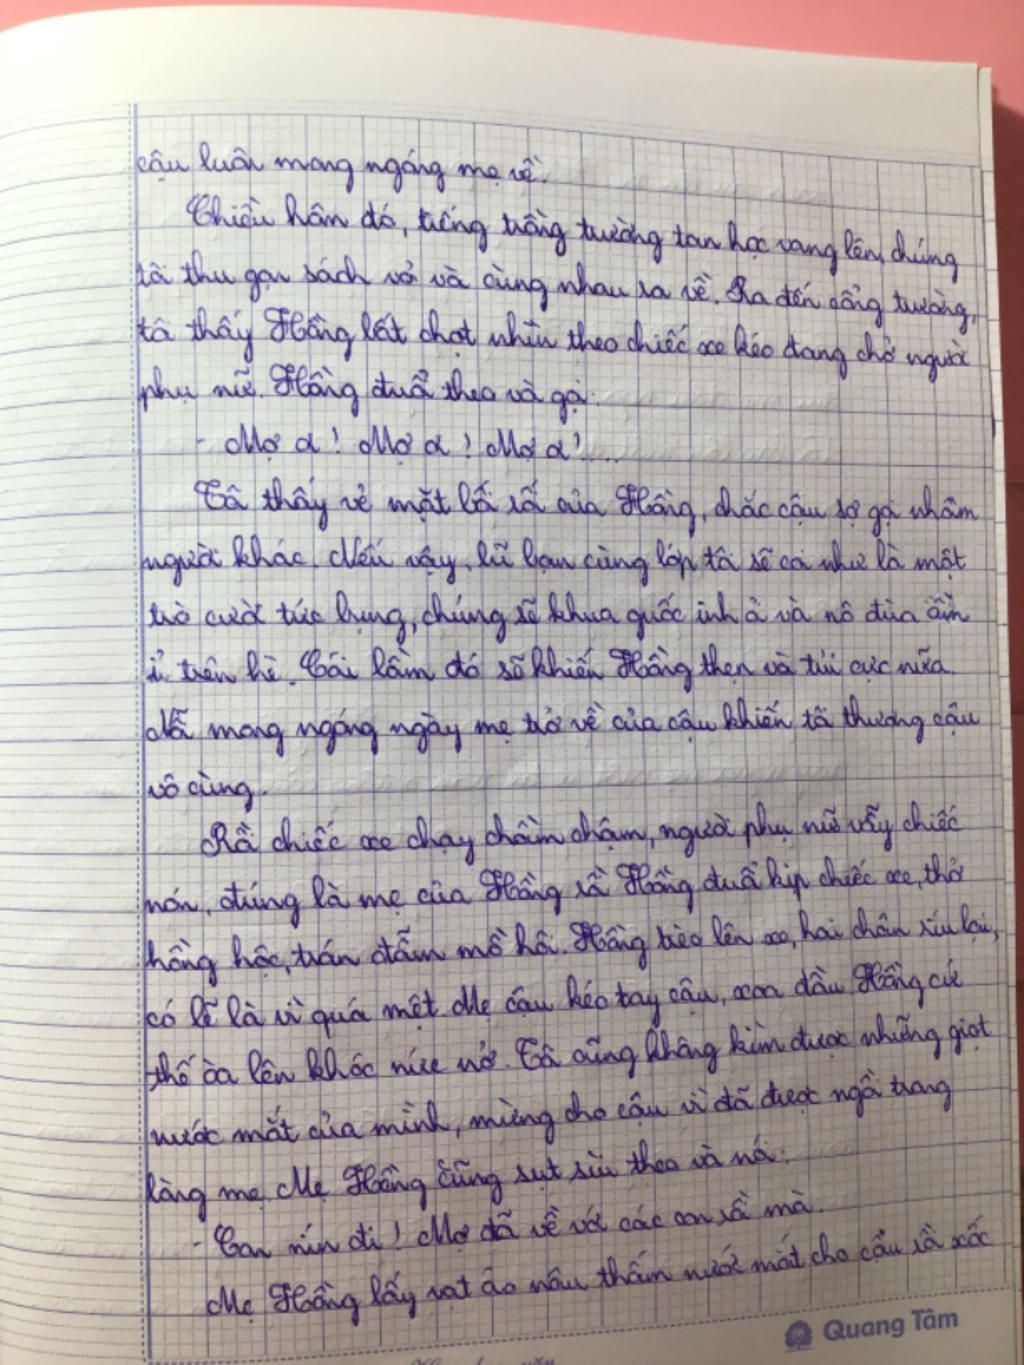 cậu luôn mong ngóng mẹ về.
Chiều hôm đó, tiếng trống trường tan học vang lên, chúng
tôi thu gọn sách vở và cùng nhau ra về. Ra đến cổng trường,
tôi thấy Hồng bất chợt nhìn theo chiếc xe kéo đang chở người
phụ nữ. Hồng đuổi theo và gọi:
- Mợ ơi! Mợ ơi! Mợ ơi!...
Tôi thấy vẻ mặt bối rối của Hồng, chắc cậu sợ gọi nhầm
người khác. Nếu vậy, lũ bạn cùng lớp tôi sẽ coi như là một
trò cười tức bụng, chúng sẽ khua guốc inh ỏi và nô đùa ầm
ĩ trên hè. Cái lầm đó sẽ khiến Hồng thẹn và tủi cực nữa.
Nỗi mong ngóng ngày mẹ trở về của cậu khiến tôi thương cậu
vô cùng.
Rồi chiếc xe chạy chầm chậm, người phụ nữ vẫy chiếc
nón, đúng là mẹ của Hồng rồi. Hồng đuổi kịp chiếc xe, thở
hồng hộc, trán đẫm mồ hôi. Hồng trèo lên xe, hai chân ríu lại,
có lẽ là vì quá mệt. Mẹ cậu kéo tay cậu, xoa đầu Hồng cứ
thế òa lên khóc nức nở. Tôi cũng không kìm được những giọt
nước mắt của mình, mừng cho cậu vì đã được ngồi trong
lòng mẹ. Mẹ Hồng cũng sụt sùi theo và nói:
- Con nín đi! Mợ đã về với các con rồi mà.
Mẹ Hồng lấy vạt áo nâu thấm nước mắt cho cậu rồi xốc
Quang Tâm